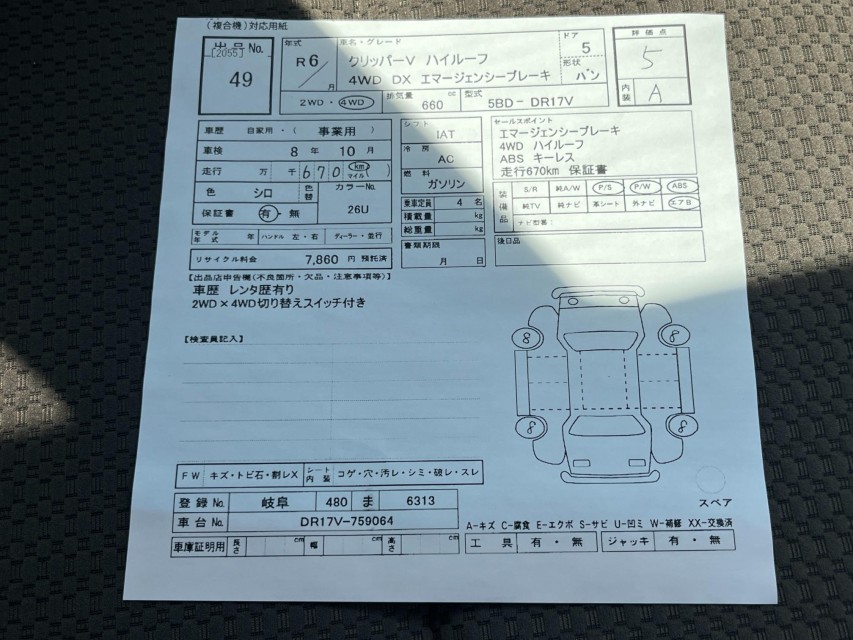 (複合機)対応用紙
出品No.
[2055]
49
年式
R6／月
車名・グレード
クリッパーV ハイルーフ
4WD DX エマージェンシーブレーキ
ドア
5
形状
バン
評価点
5
内装
A
2WD・4WD
排気量
660 cc
型式
5BD－DR17V
車歴 自家用・( 事業用 )
車検 8 年 10 月
走行 万 千 670 km マイル ( )
色 シロ
色替
カラーNo.
26U
保証書 有・無
シフト
IAT
冷房
AC
燃料
ガソリン
乗車定員 4 名
積載量 kg
総重量 kg
書類期限
月 日
セールスポイント
エマージェンシーブレーキ
4WD ハイルーフ
ABS キーレス
走行670km 保証書
装備品
S/R 純A/W P/S P/W ABS
純TV 純ナビ 革シート 外ナビ エアB
ナビ型番：
モデル年式 年 ハンドル 左・右 ディーラー・並行
後日品
リサイクル料金 7,860 円 預託済
【出品店申告欄(不良箇所・欠品・注意事項等)】
車歴 レンタ歴有り
2WD×4WD切り替えスイッチ付き
【検査員記入】
8 8
8 8
スペア
FW キズ・トビ石・割レX シート内装 コゲ・穴・汚レ・シミ・破レ・スレ
登録No. 岐阜 480 ま 6313
車台No. DR17V-759064
A-キズ C-腐食 E-エクボ S-サビ U-凹ミ W-補修 XX-交換済
車庫証明用 長さ cm 幅 cm 高さ cm
工具 有・無 ジャッキ 有・無